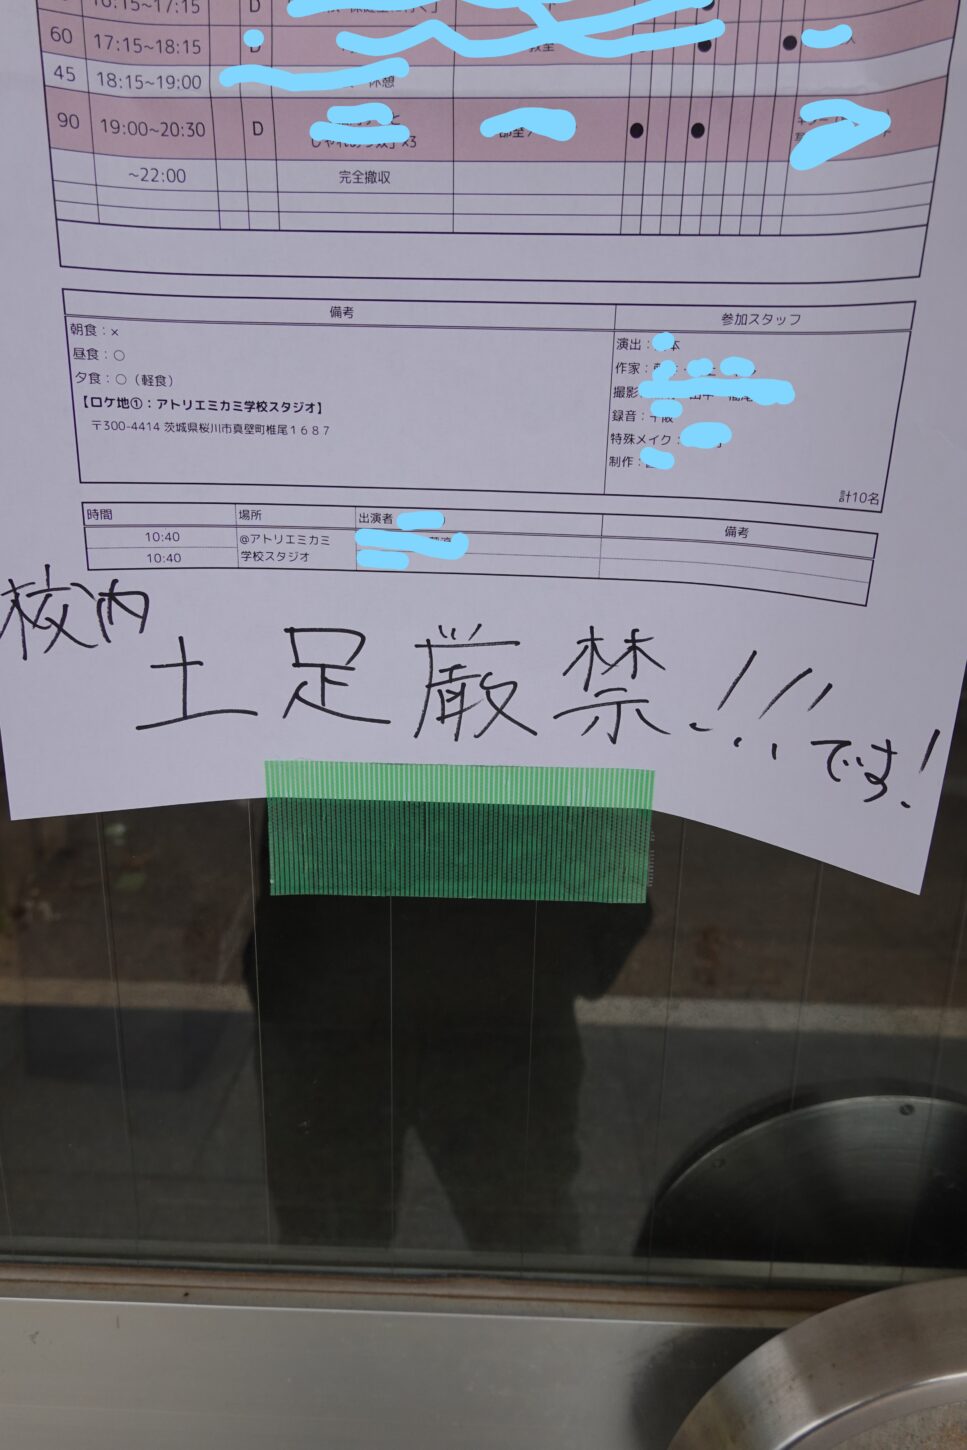 16:15~17:15 D
60 17:15~18:15 D
45 18:15~19:00 休憩
90 19:00~20:30 D
×3
~22:00 完全撤収
備考 参加スタッフ
朝食：×
昼食：○
夕食：○（軽食）
【ロケ地①：アトリエミカミ学校スタジオ】
〒300-4414 茨城県桜川市真壁町椎尾１６８７
演出：
作家：
撮影
録音：
特殊メイク：
制作：
計10名
時間 場所 出演者 備考
10:40 @アトリエミカミ
10:40 学校スタジオ
校内
土足厳禁!!!
です!